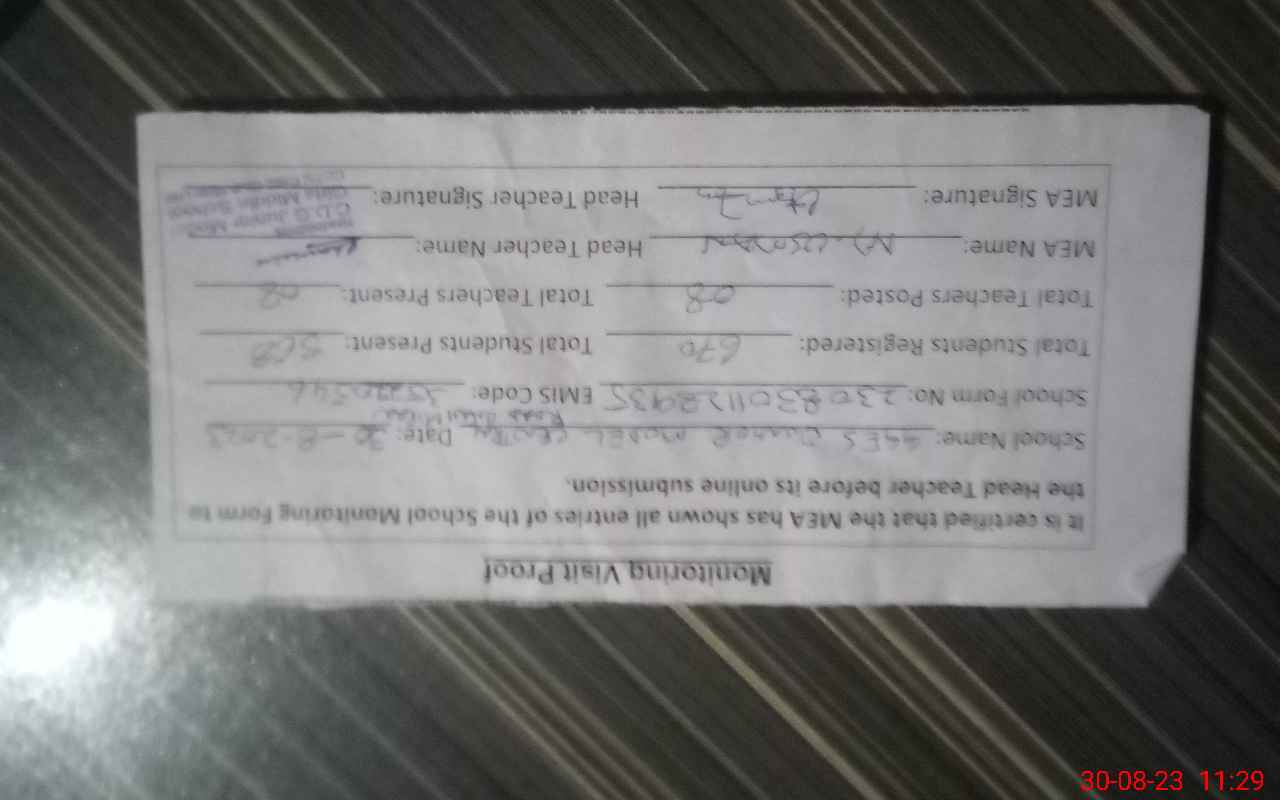 Monitoring Visit Proof
It is certified that the MEA has shown all entries of the School Monitoring Form to
the Head Teacher before its online submission.
School Name: GGES JUNIOR MODEL CENTRAL Date: 30-8-2023
Road
School Form No: EMIS Code:
Total Students Registered: 670 Total Students Present:
Total Teachers Posted: 08 Total Teachers Present: 08
MEA Name: M. USMAN Head Teacher Name:
MEA Signature: Head Teacher Signature:
C.D.G Junior Model
Girls Middle School
30-08-23 11:29